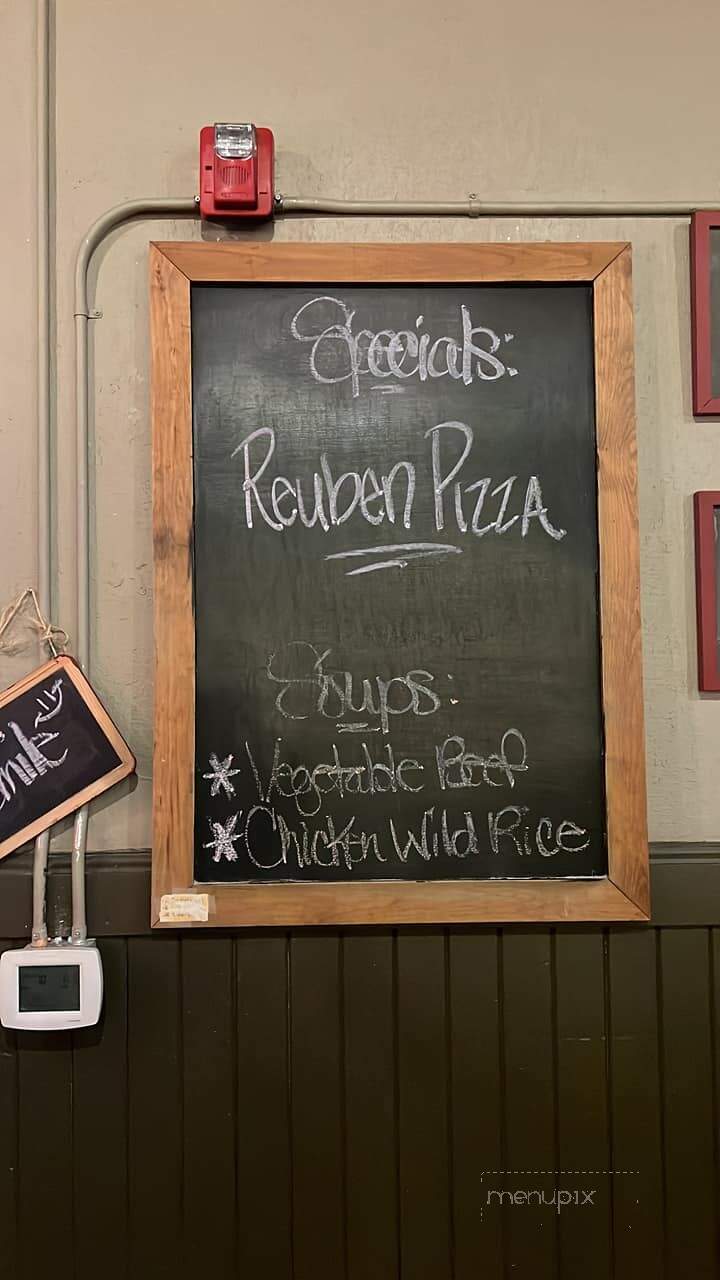 Specials:
Reuben Pizza
Soups:
* Vegetable Beef
* Chicken Wild Rice
menupix